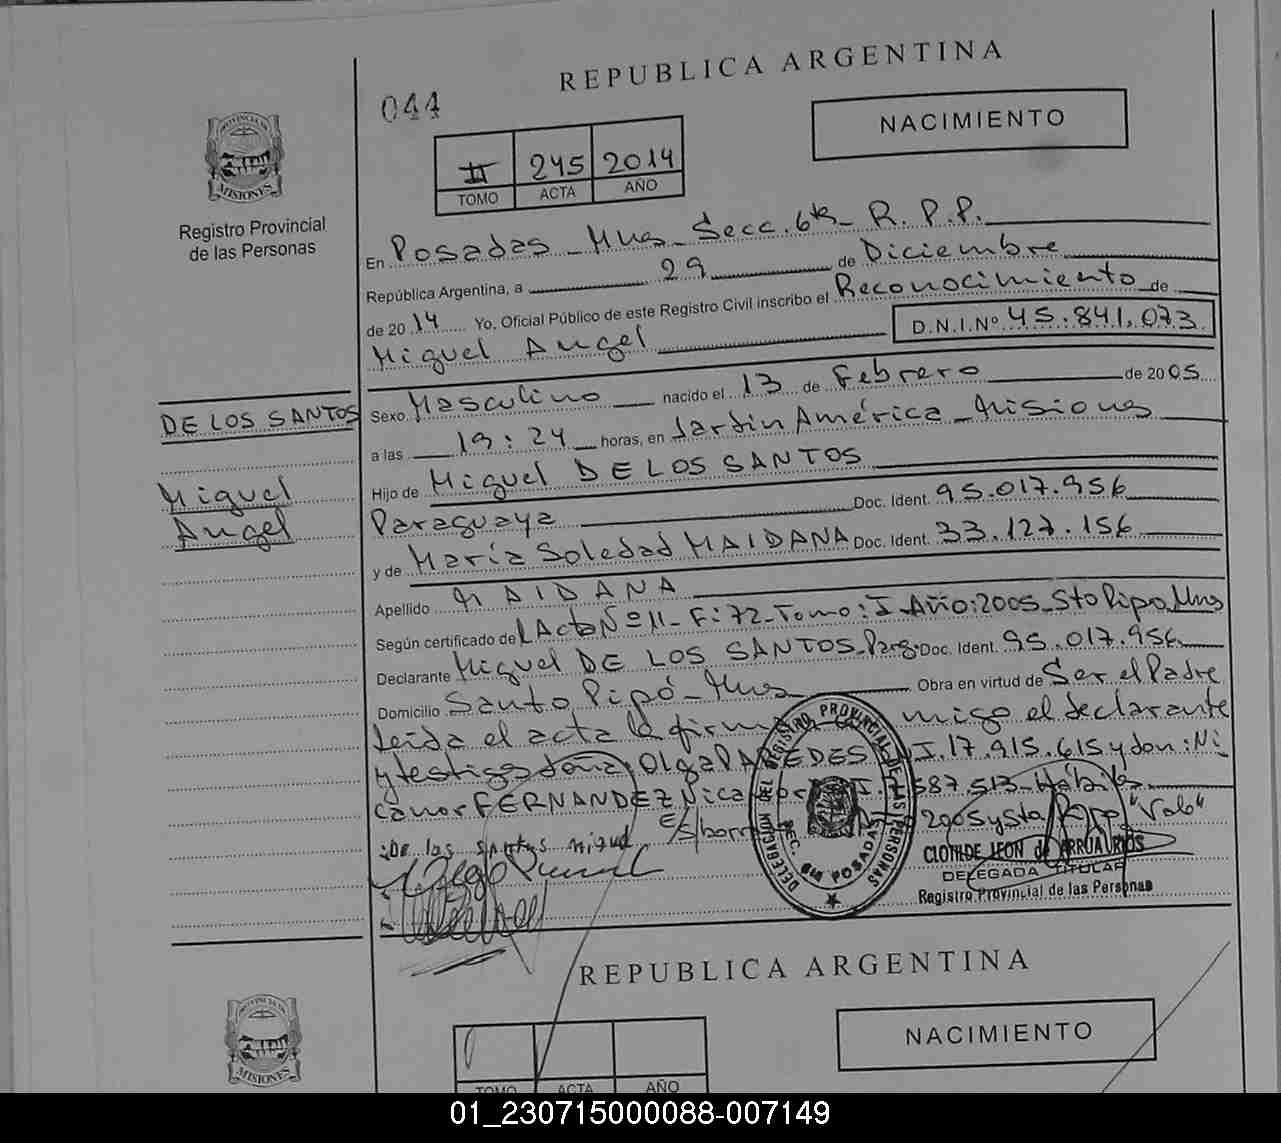 REPUBLICA ARGENTINA
044
NACIMIENTO
PROVINCIA DE
MISIONES
Registro Provincial
de las Personas
II 245 2014
TOMO ACTA AÑO
En Posadas - Mnes - Secc. 6ta - R.P.P.
República Argentina, a 29 de Diciembre
de 2014 Yo, Oficial Público de este Registro Civil inscribo el Reconocimiento de
Miguel Angel D.N.I.Nº 45.841.073
DE LOS SANTOS
Miguel
Angel
Sexo Masculino nacido el 13 de Febrero de 2005
a las 19:24 horas, en Jardin América - Misiones
Hijo de Miguel DE LOS SANTOS
Paraguaya Doc. Ident. 95.017.956
y de María Soledad MAIDANA Doc. Ident. 33.127.156
Apellido MAIDANA
Según certificado de Acta Nº 11 - F: 72 - Tomo: I - Año: 2005 - Sto Pipo, Mnes
Declarante Miguel DE LOS SANTOS - Parg. Doc. Ident. 95.017.956
Domicilio Santo Pipó - Mnes Obra en virtud de Ser el Padre
Leida el acta la firma migo el declarante
y testigo doña: Olga PAREDES D.I. 17.915.615 y don: Ni
canor FERNANDEZ 587.513 - Hábiles
2005 y Sto Pipo "Vale"
De los santos miguel
DELEGACION DEL REGISTRO PROVINCIAL DE LAS PERSONAS
SEC. 6ta POSADAS
CLOTILDE LEON de ARRUA RIOS
DELEGADA TITULAR
Registro Provincial de las Personas
REPUBLICA ARGENTINA
NACIMIENTO
MISIONES
TOMO ACTA AÑO
01_230715000088-007149